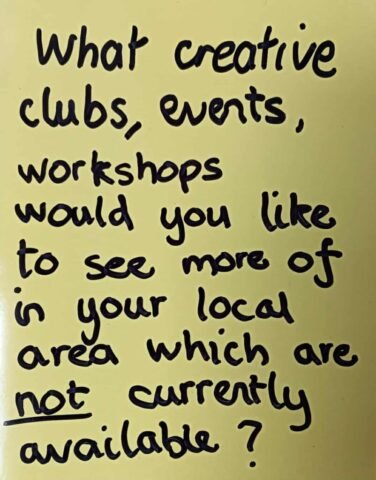 What creative
clubs, events,
workshops
would you like
to see more of
in your local
area which are
not currently
available ?